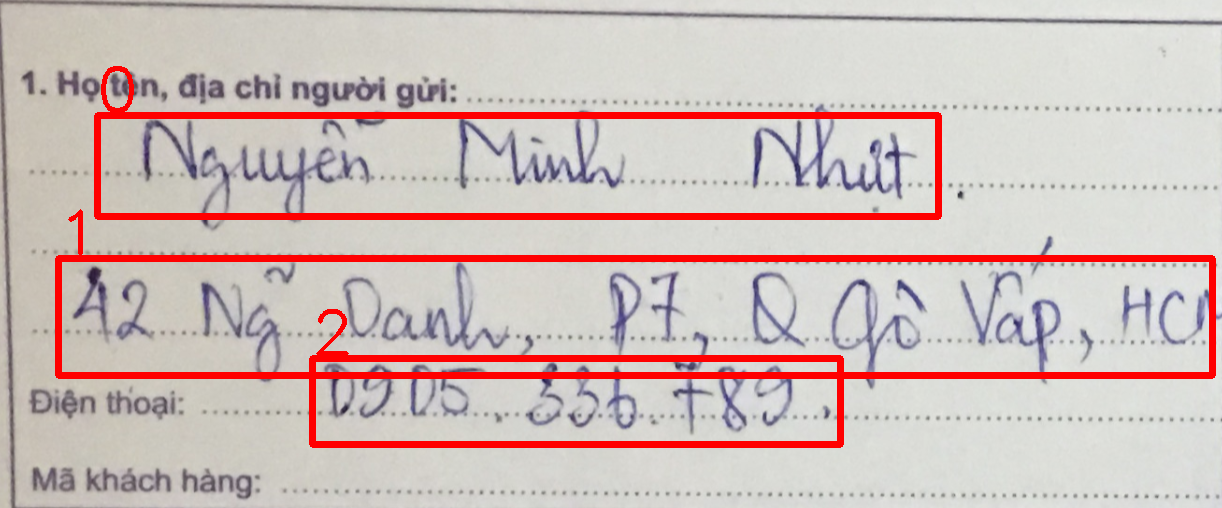 1. Họ tên, địa chỉ người gửi:
0
Nguyễn Minh Nhựt.
1
42 Ng̃ Danh, P7, Q Gò Vấp, HCM
2
Điện thoại: 0905.336.789.
Mã khách hàng: